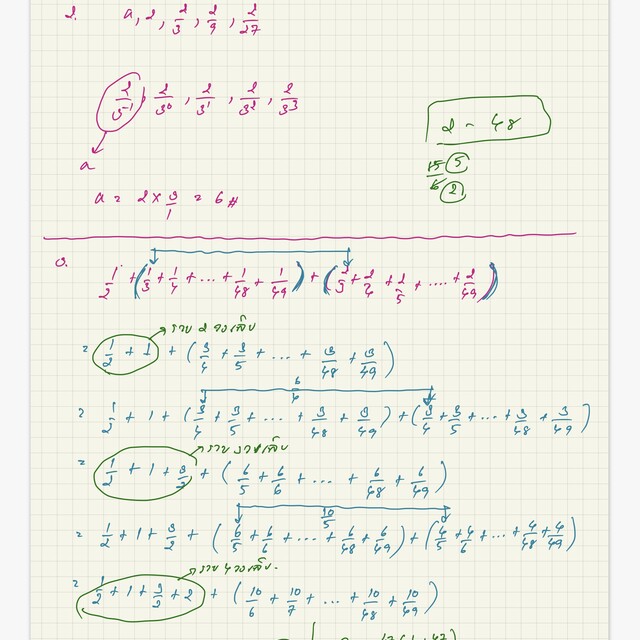 2. a, 2, 2/3, 2/9, 2/27
2/3⁻¹, 2/3⁰, 2/3¹, 2/3², 2/3³
2 - 48
a
15/6 5 2
a = 2 × 3/1 = 6 #
3. 1/2 + (1/3 + 1/4 + ... + 1/48 + 1/49) + (2/3 + 2/4 + 2/5 + .... + 2/49)
รวม 2 วงเล็บ
= 1/2 + 1 + (3/4 + 3/5 + ... + 3/48 + 3/49)
6/4
= 1/2 + 1 + (3/4 + 3/5 + ... + 3/48 + 3/49) + (3/4 + 3/5 + ... + 3/48 + 3/49)
= 1/2 + 1 + 3/2 + (6/5 + 6/6 + ... + 6/48 + 6/49)
10/5
= 1/2 + 1 + 3/2 + (6/5 + 6/6 + ... + 6/48 + 6/49) + (4/5 + 4/6 + ... + 4/48 + 4/49)
รวม 4 วงเล็บ.
= 1/2 + 1 + 3/2 + 2 + (10/6 + 10/7 + ... + 10/48 + 10/49)